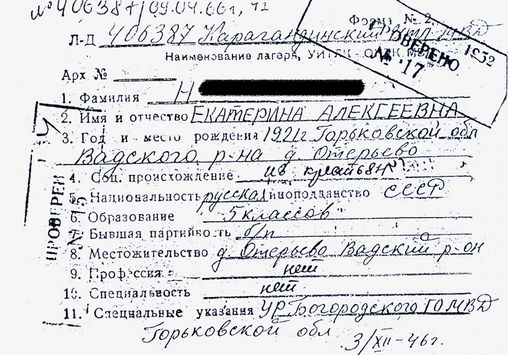 №406387/09.04.66г, ч2
Форма № 2
Л-Д 406387 Карагандинский МВД
Наименование лагеря, УИТЛК—ОИТК МВД
Арх №
ПРОВЕРЕНО 1952
№ 17
1. Фамилия Н
2. Имя и отчество ЕКАТЕРИНА АЛЕКСЕЕВНА
3. Год и место рождения 1921г Горьковской обл
Вадского р-на д. Отерьево
4. Соц. происхождение из крестьян
5. Национальность русская подданство СССР
6. Образование "5 классов"
7. Бывшая партийность б/п
8. Местожительство д. Отерьево Вадский р-он
9. Профессия нет
10. Специальность нет
11. Специальные указания УР. Богородского ГОМВД
Горьковской обл.
3/XII-46г.
ПРОВЕРЕН